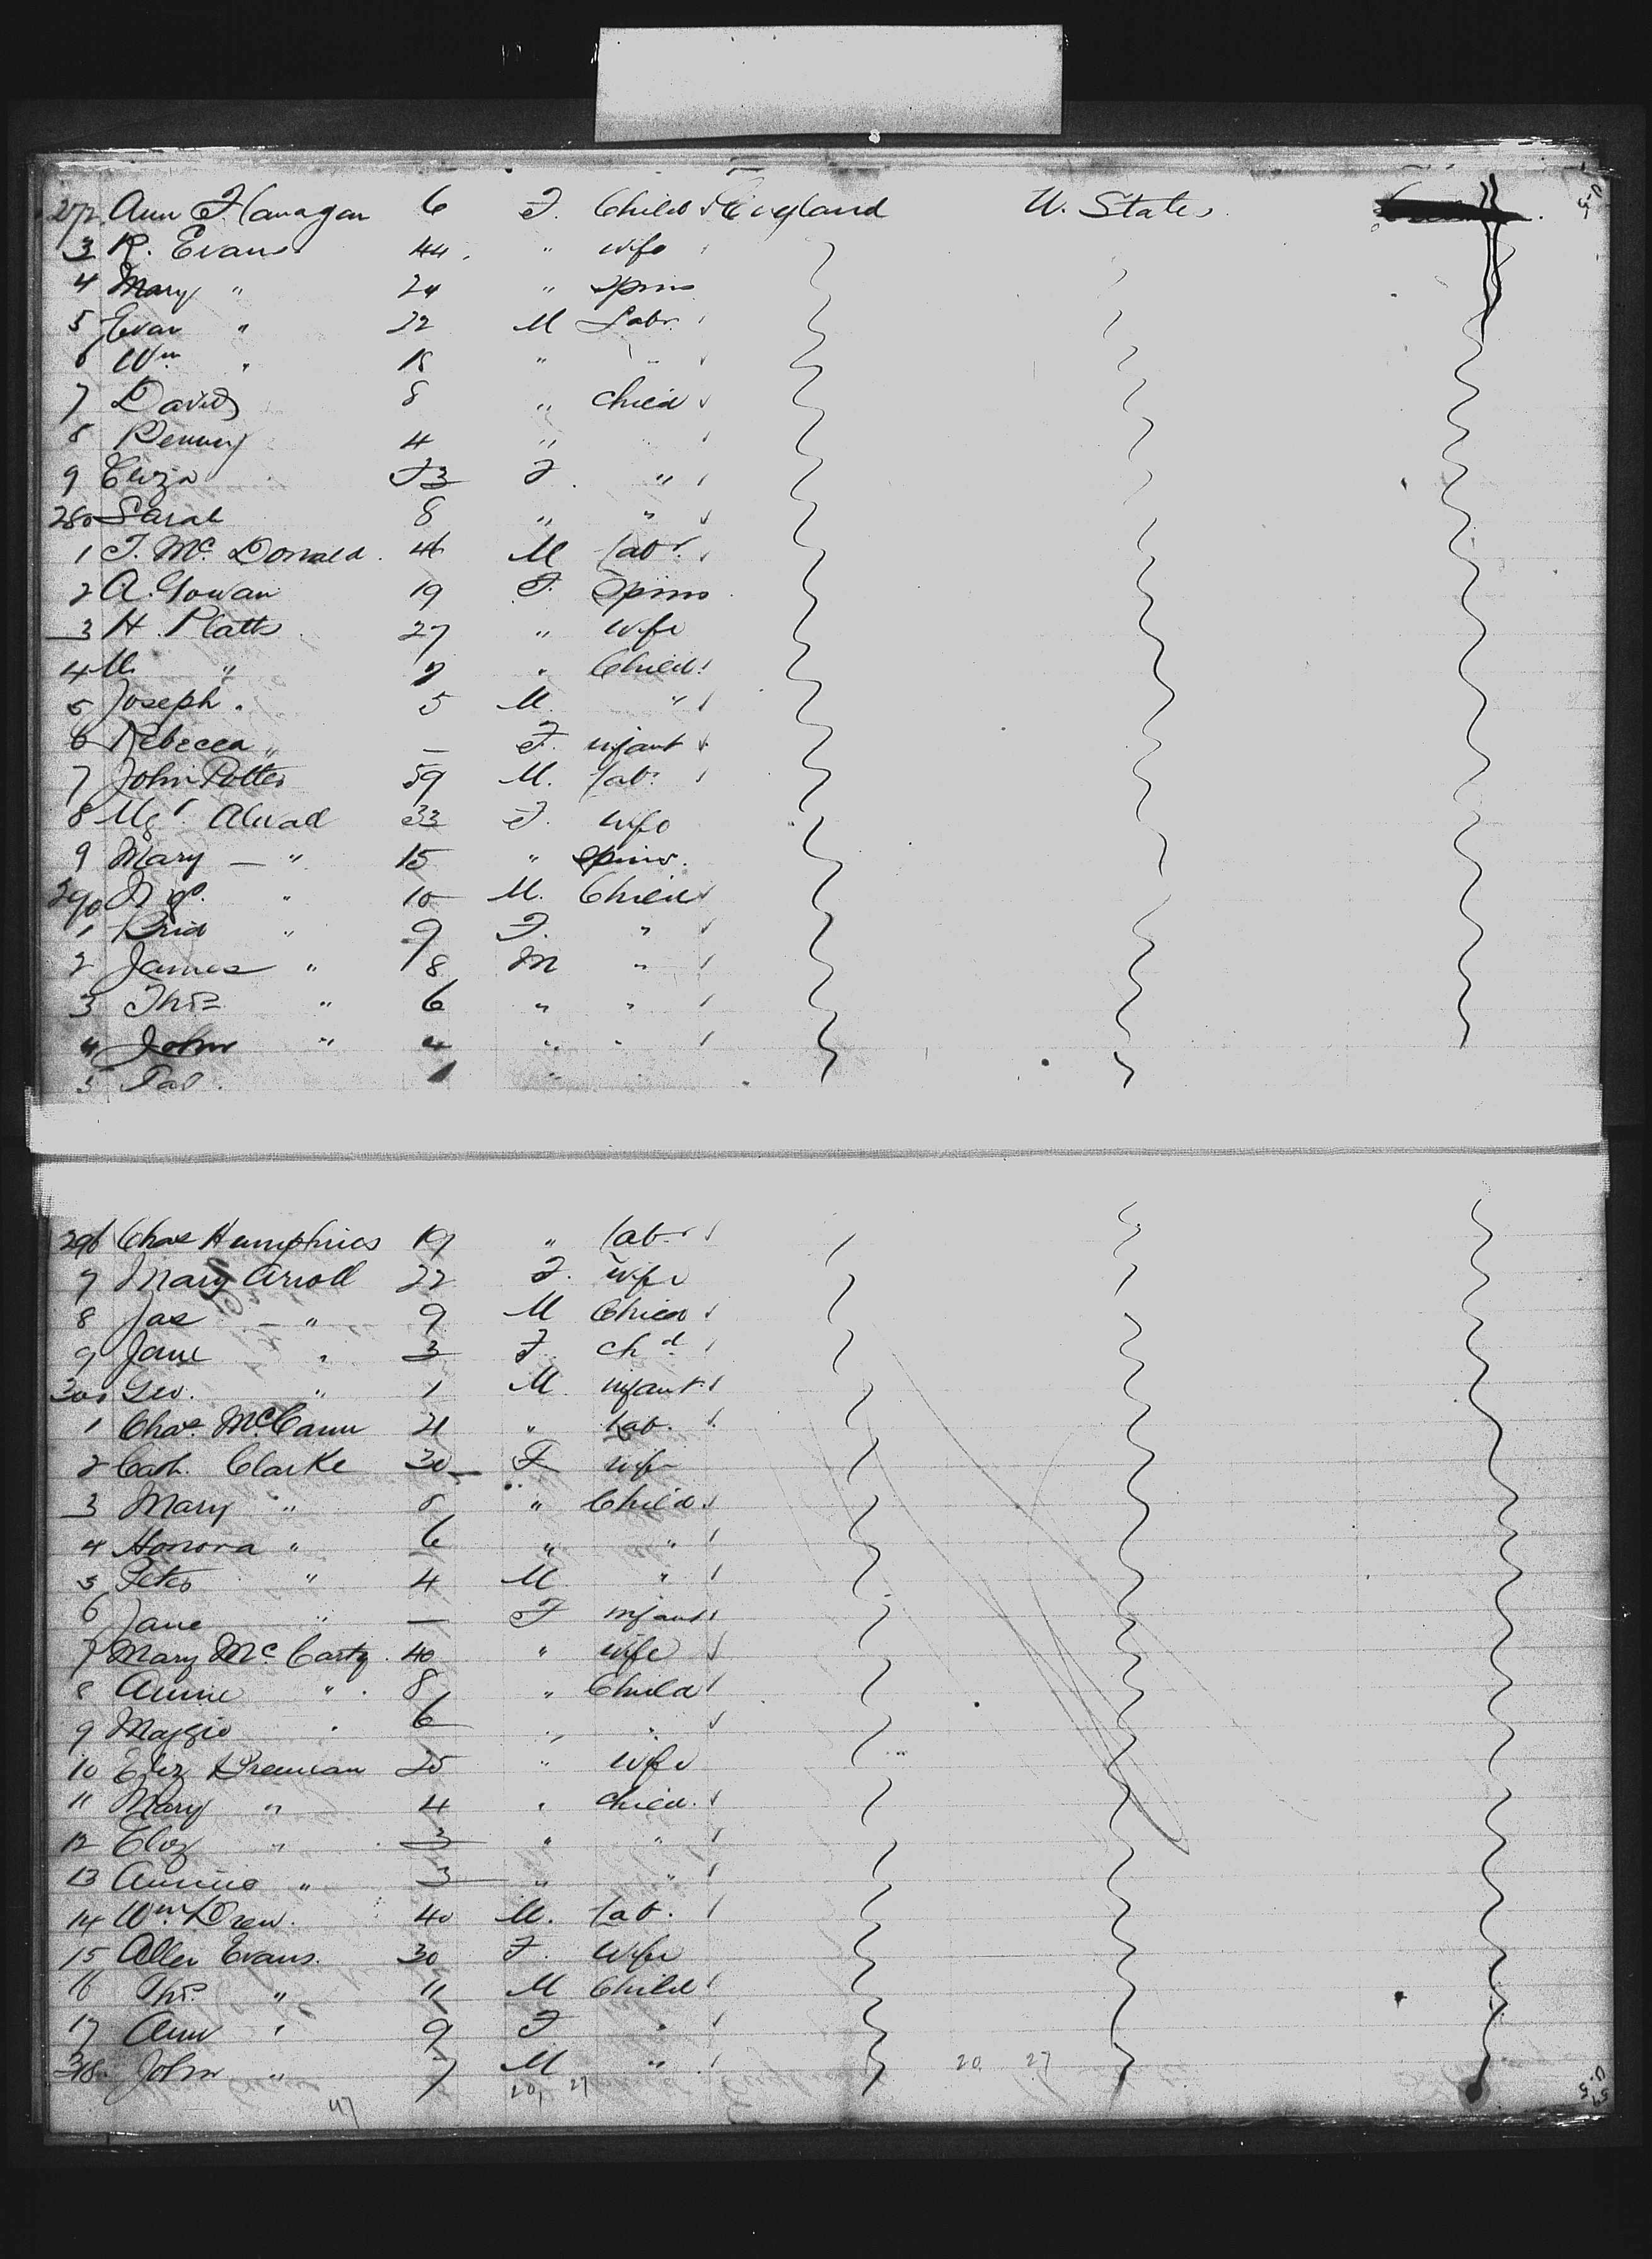 272 Ann Flanagan 6 F. Child England U. States
3 R. Evans 44 " wife
4 Mary " 24 " Spins
5 Evan " 22 M Labr.
6 Wm " 18 " "
7 David 8 " child
8 4 "
9 Eliza F "
280 Sarah 8 " "
1 T. McDonald 44 M labr.
2 A. Gowan 19 F. Spins
3 H. Platts 27 " wife
4 M. " 7 " Child
5 Joseph " 5 M. "
6 Rebecca " — F. infant
7 John Potter 59 M. lab.
8 Mgt. 33 F. wife
9 Mary — " 15 " Spins.
290 " 10 M. Child
1 Brid " 9 F. "
2 James " 8 M "
3 Thos " 6 " "
4 John " 4 " "
5 Pat " "
296 Chas Humphries 19 " labr
7 Mary Carroll 22 F. wife
8 Jas — " 9 M Child
9 Jane " 3 F. chd
Geo. " 1 M. infant
1 Chas. McCann 21 " Lab.
2 Cath. Clarke 30 F wife
3 Mary " 8 " Child
4 Honora " 6 " "
5 Peter " 4 M "
6 Jane " — F infant
7 Mary McCarty 40 " wife
8 Annie " 8 " Child
9 Maggie " 6 " "
10 Eliz Brennan 25 " wife
11 Mary " 4 " child.
12 Eliz " 3 " "
13 Annie " 3 " "
14 Wm. Drew. 40 M. lab.
15 Allen Evans. 30 F. wife
16 Thos. " 11 M Child
17 Ann " 9 F "
318. John " 7 M " 20 27
47 20, 27